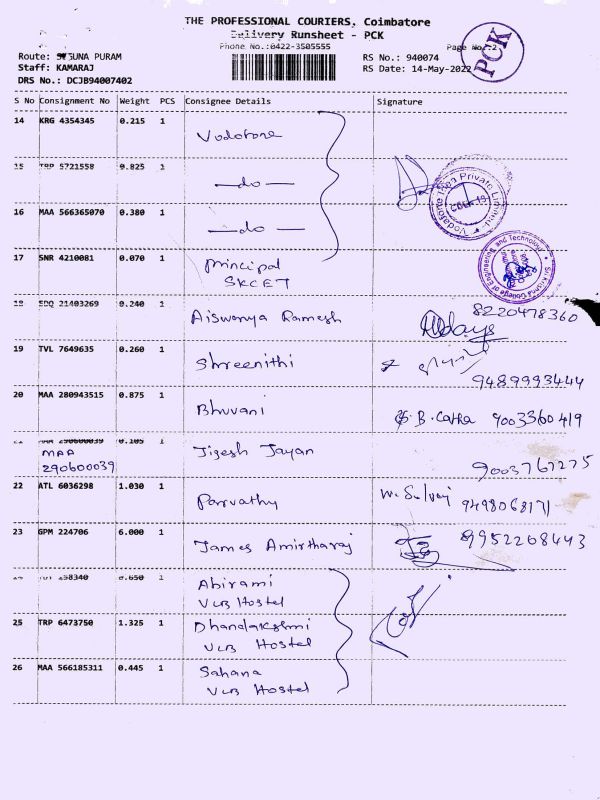 THE PROFESSIONAL COURIERS, Coimbatore
Delivery Runsheet - PCK
Phone No.:0422-3505555
Page No.:2
PCK
Route: SUGUNA PURAM
Staff: KAMARAJ
DRS No.: DCJB94007402
RS No.: 940074
RS Date: 14-May-2022
S No Consignment No Weight PCS Consignee Details Signature
14 KRG 4354345 0.215 1 Vodofone
15 TRP 5721558 0.825 1 —do—
Vodafone Idea Private Limited
16 MAA 566365070 0.380 1 —do—
17 SNR 4210081 0.070 1 Principal
SKCET
Sri Krishna College of Engineering and Technology
18 EDQ 21403269 0.240 1 Aiswarya Ramesh 8220478360
19 TVL 7649635 0.260 1 Shreenithi
9489993444
20 MAA 280943515 0.875 1 Bhuvani 9003360419
21 MAA 290600039 0.105 1 Jigesh Jayan
MAA
290600039
9003767275
22 ATL 6036298 1.030 1 Parvathy 9498068171
23 GPM 224706 6.000 1 James Amirtharaj 9952268443
24 298340 0.650 1 Abirami
VLB Hostel
25 TRP 6473750 1.325 1 Dhandakshmi
VLB Hostel
26 MAA 566185311 0.445 1 Sahana
VLB Hostel